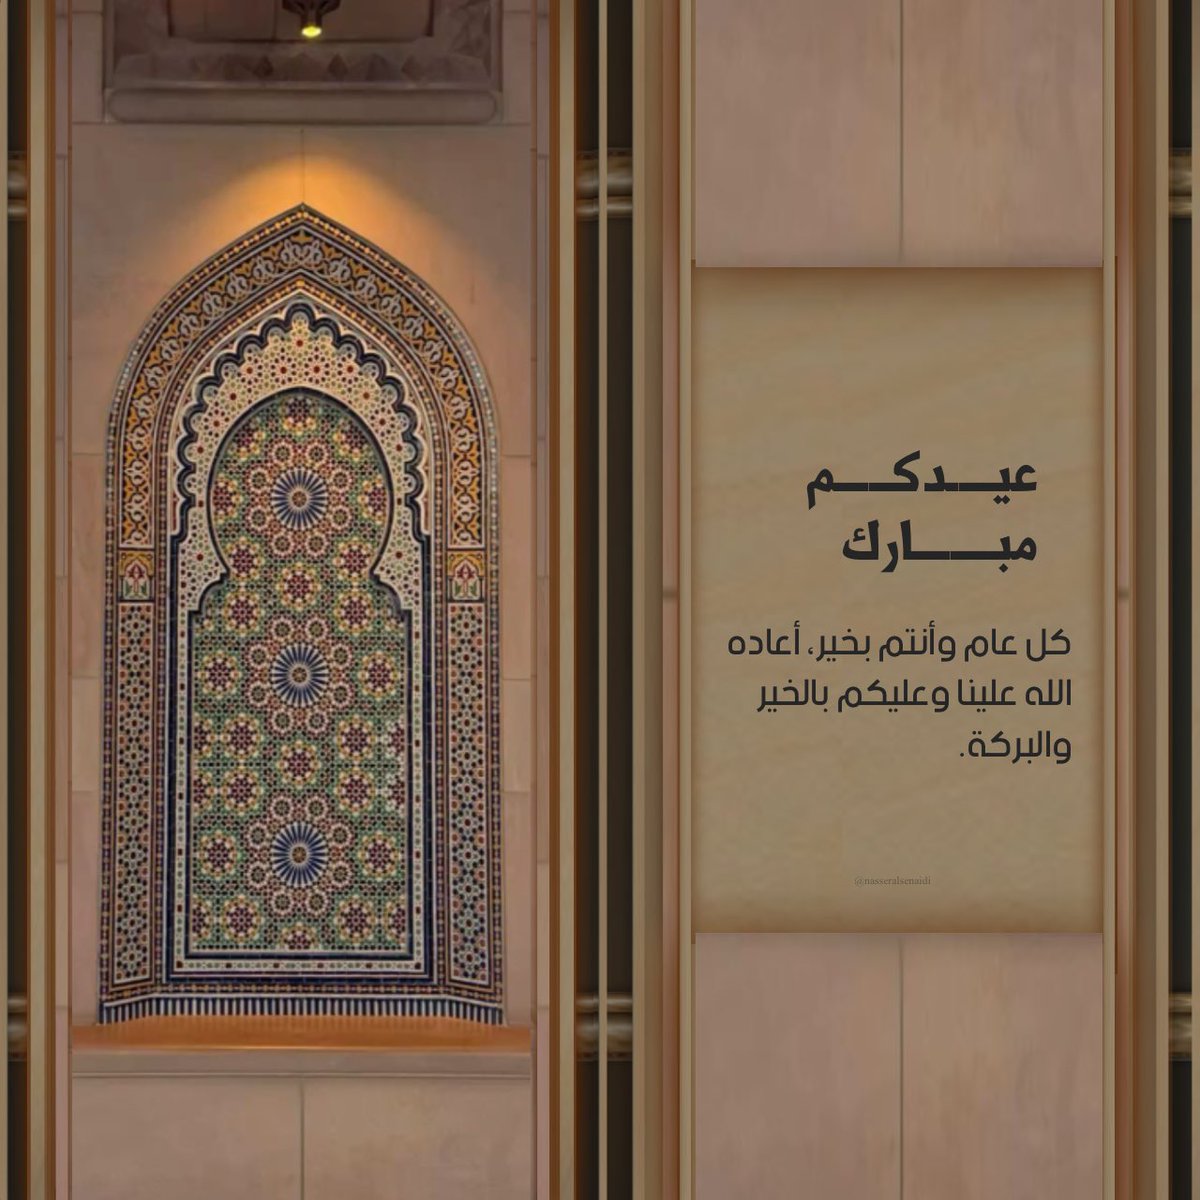 عيدكم
مبارك
كل عام وأنتم بخير، أعاده
الله علينا وعليكم بالخير
والبركة.
@nasseralsenaidi